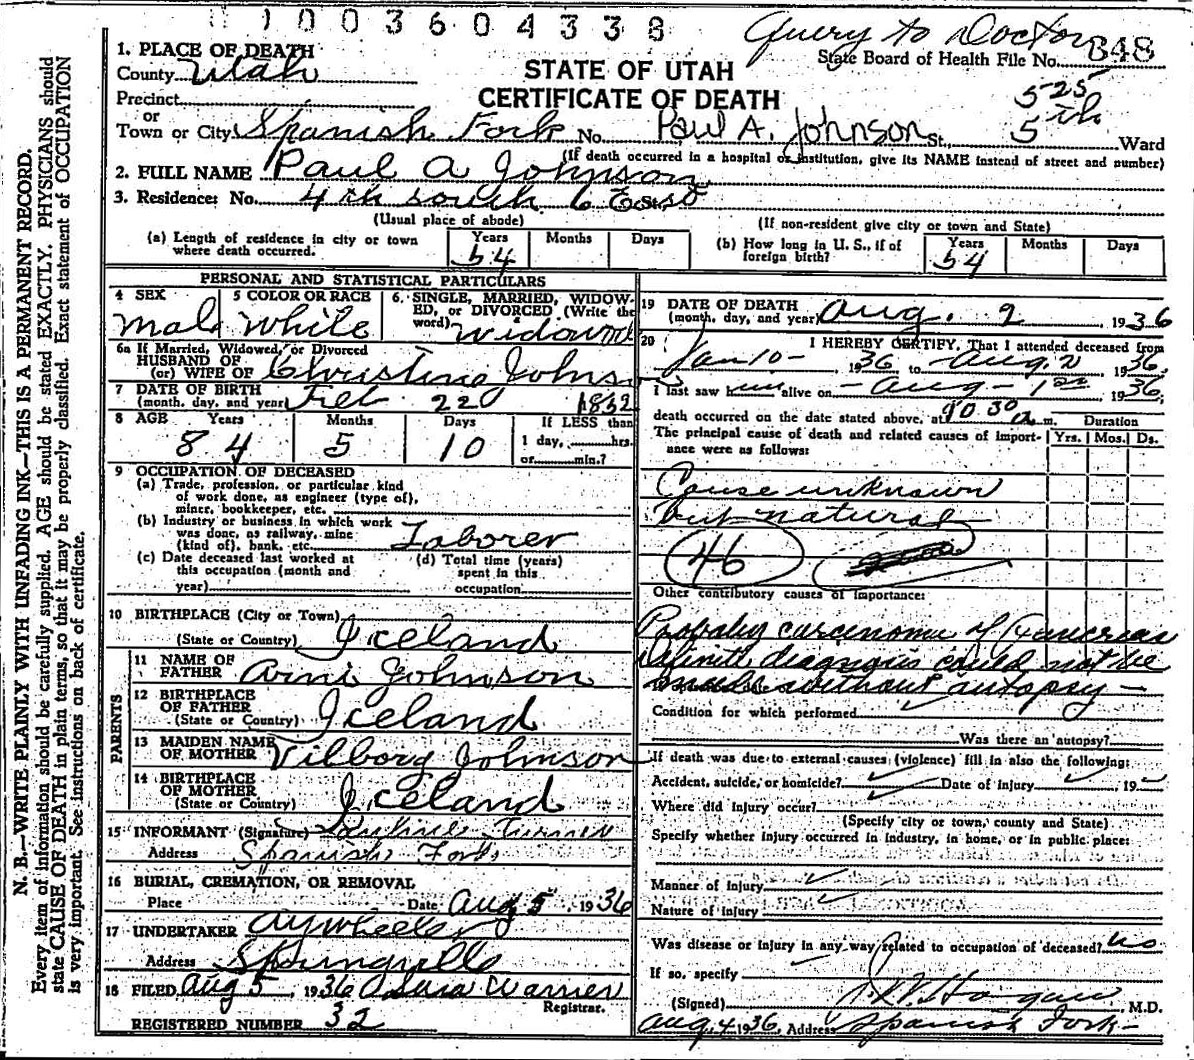 1003604338
Query to Doctor
State Board of Health File No. 348
525
1. PLACE OF DEATH
County Utah
STATE OF UTAH
CERTIFICATE OF DEATH
Precinct
or
Town or City Spanish Fork No. Paul A. Johnson St., 5th Ward
(If death occurred in a hospital or institution, give its NAME instead of street and number)
2. FULL NAME Paul A Johnson
3. Residence: No. 4th south 6 East St.
(Usual place of abode) (If non-resident give city or town and State)
(a) Length of residence in city or town where death occurred. Years 54 Months Days
(b) How long in U. S., if of foreign birth? Years 54 Months Days
PERSONAL AND STATISTICAL PARTICULARS
4 SEX Male
5 COLOR OR RACE White
6. SINGLE, MARRIED, WIDOWED, or DIVORCED (Write the word) widowed
6a If Married, Widowed, or Divorced
HUSBAND OF
(or) WIFE OF Christina Johnson
7 DATE OF BIRTH
(month, day, and year) Feb 22 1852
8 AGE Years 84 Months 5 Days 10 If LESS than 1 day, hrs. or min.?
9 OCCUPATION OF DECEASED
(a) Trade, profession, or particular kind
of work done, as engineer (type of),
miner, bookkeeper, etc.
(b) Industry or business in which work
was done, as railway, mine
(kind of), bank, etc. Laborer
(c) Date deceased last worked at
this occupation (month and
year)
(d) Total time (years)
spent in this
occupation
10 BIRTHPLACE (City or Town)
(State or Country) Iceland
PARENTS
11 NAME OF
FATHER Arni Johnson
12 BIRTHPLACE
OF FATHER
(State or Country) Iceland
13 MAIDEN NAME
OF MOTHER Vilborg Johnson
14 BIRTHPLACE
OF MOTHER
(State or Country) Iceland
15 INFORMANT (Signature) Turner
Address Spanish Fork
16 BURIAL, CREMATION, OR REMOVAL
Place Date Aug 5 1936
17 UNDERTAKER A Y Wheeler
Address Springville
18 FILED Aug 5, 1936 Warner
Registrar.
REGISTERED NUMBER 32
19 DATE OF DEATH
(month, day, and year) Aug. 2 1936
20 I HEREBY CERTIFY, That I attended deceased from
Jan 10 - 1936 to Aug. 2 1936.
I last saw him alive on - Aug - 1st 1936;
death occurred on the date stated above, at 10 30 a m.
The principal cause of death and related causes of importance were as follows:
Duration
Yrs. Mos. Ds.
Cause unknown
but natural
46
Other contributory causes of importance:
Probably carcinoma of Pancreas
definite diagnosis could not be
made without autopsy -
Condition for which performed
Was there an autopsy?
If death was due to external causes (violence) fill in also the following:
Accident, suicide, or homicide? Date of injury 19
Where did injury occur?
(Specify city or town, county and State)
Specify whether injury occurred in industry, in home, or in public place:
Manner of Injury
Nature of injury
Was disease or injury in any way related to occupation of deceased? No
If so, specify
(Signed) Hagan M.D.
Aug. 4 1936, Address Spanish Fork -
N. B.—WRITE PLAINLY WITH UNFADING INK—THIS IS A PERMANENT RECORD.
Every item of information should be carefully supplied. AGE should be stated EXACTLY. PHYSICIANS should
state CAUSE OF DEATH in plain terms, so that it may be properly classified. Exact statement of OCCUPATION
is very important. See instructions on back of certificate.